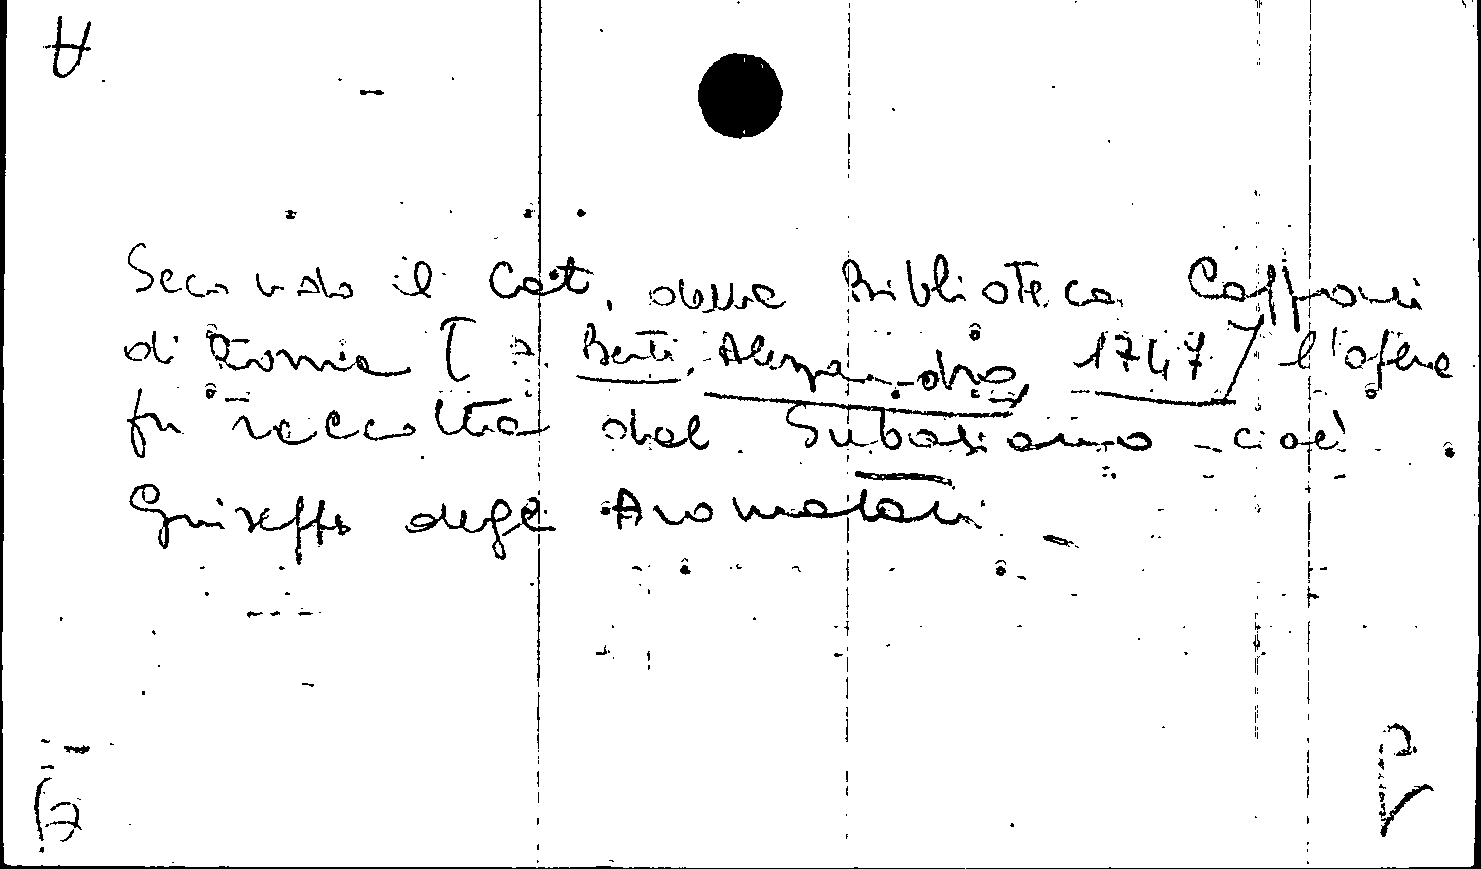 Secondo il Cat. della Biblioteca Capponi
di Roma [ a. Berti, Alessandro, 1747] l'opera
fu raccolta dal Subasiano - cioè
Giuseppe degli Aromatari -